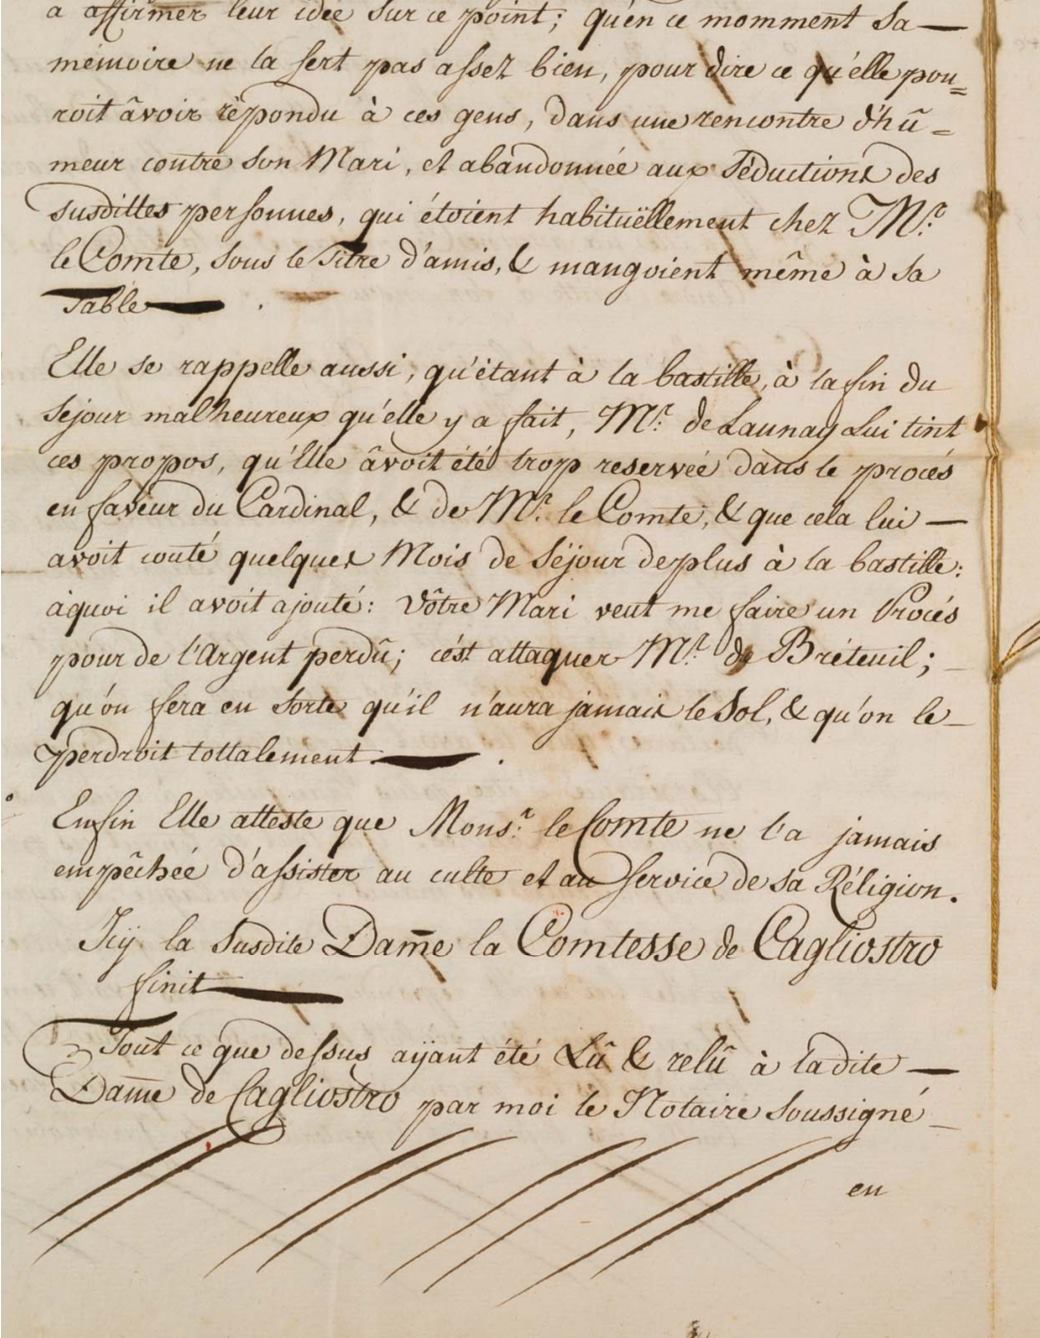 a affirmer leur idée sur ce point; qu'en ce momment sa —
mémoire ne la sert pas assez bien, pour dire ce qu'elle pou=
roit âvoir rèpondu à ces gens, dans une rencontre d'hû=
meur contre son Mari, et abandonnée aux Séductions des
susdittes personnes, qui étoient habituëllement chez M.r
le Comte, sous le Titre d'amis, & mangoient même à sa
Table — .
Elle se rappelle aussi, qu'étant à la bastille, à la fin du
séjour malheureux qu'elle y a fait, M.r de Launay Lui tint
ces propos, qu'Elle âvoit été trop reservée dans le procés
en faveur du Cardinal, & de M.r le Comte, & que cela lui —
avoit couté quelques Mois de Séjour de plus à la bastille:
àquoi il avoit ajouté: Vôtre Mari veut me faire un Procés
pour de l'Argent perdû; c'ést attaquer M.r de Bréteuil; —
qu'on fera en sorte qu'il n'aura jamais le Sol, & qu'on le —
perdroit tottalement — .
Enfin Elle atteste que Mons.r le Comte ne l'a jamais
empêchée d'assister au culte et au Service de sa Réligion.
Icÿ la susdite Dame la Comtesse de Cagliostro
finit —
Tout ce que dessus aÿant été Lû & relû à ladite —
Dame de Cagliostro par moi le Notaire Soussigné —
en